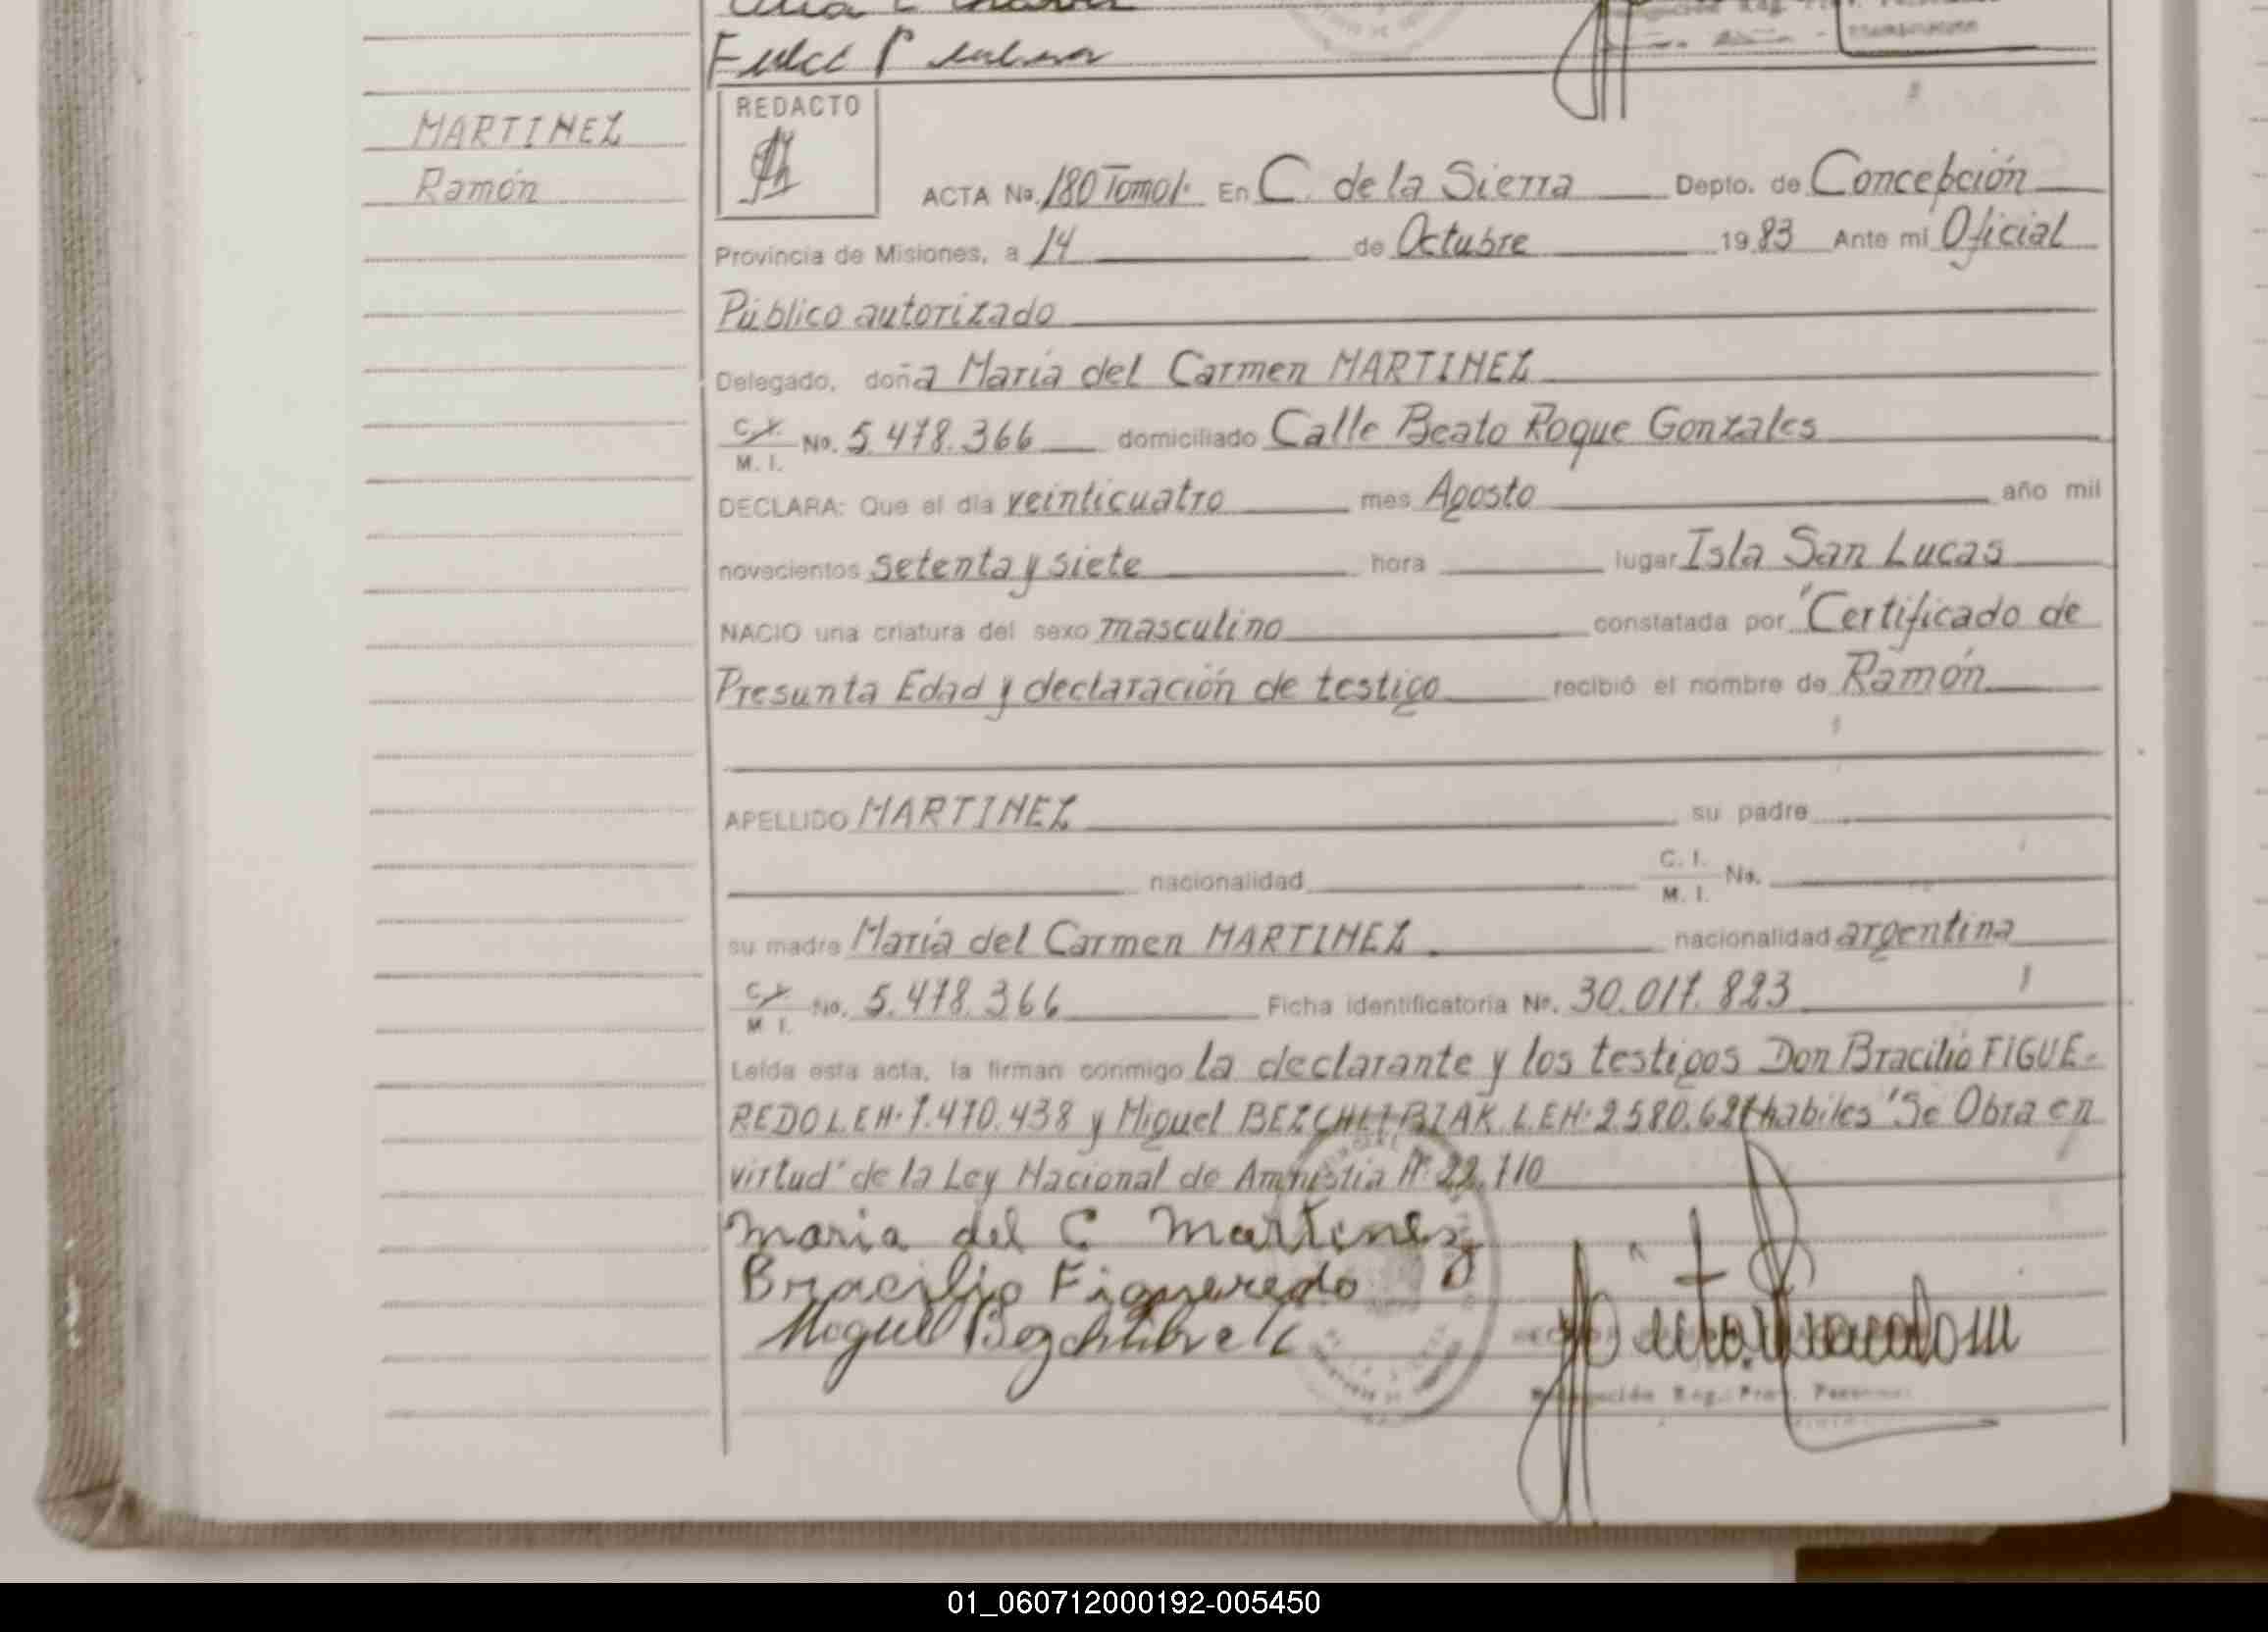 MARTINEZ
Ramón
REDACTO
ACTA No. 180 Tomo 1º En C. de la Sierra Depto. de Concepción
Provincia de Misiones, a 14 de Octubre 1983 Ante mi Oficial
Público autorizado
Delegado, doña María del Carmen MARTINEZ
C.I. M.I. No. 5.478.366 domiciliado Calle Beato Roque Gonzales
DECLARA: Que el día veinticuatro mes Agosto año mil
novecientos setenta y siete hora lugar Isla San Lucas
NACIO una criatura del sexo masculino constatada por "Certificado de
Presunta Edad y declaración de testigo recibió el nombre de Ramón
APELLIDO MARTINEZ su padre
nacionalidad C.I. M.I. No.
su madre María del Carmen MARTINEZ nacionalidad argentina
C.I. M.I. No. 5.478.366 Ficha identificatoria No. 30.017.823
Leída esta acta, la firman conmigo la declarante y los testigos Don Bracilio FIGUE-
REDO L.E.Nº 7.470.438 y Miguel L.E.Nº 2.580.627 habiles "Se Obra en
virtud" de la Ley Nacional de Amnistia Nº 22.710
Maria del C Martinez
Bracilio Figueredo
Miguel
Reg. Prov.
01_060712000192-005450